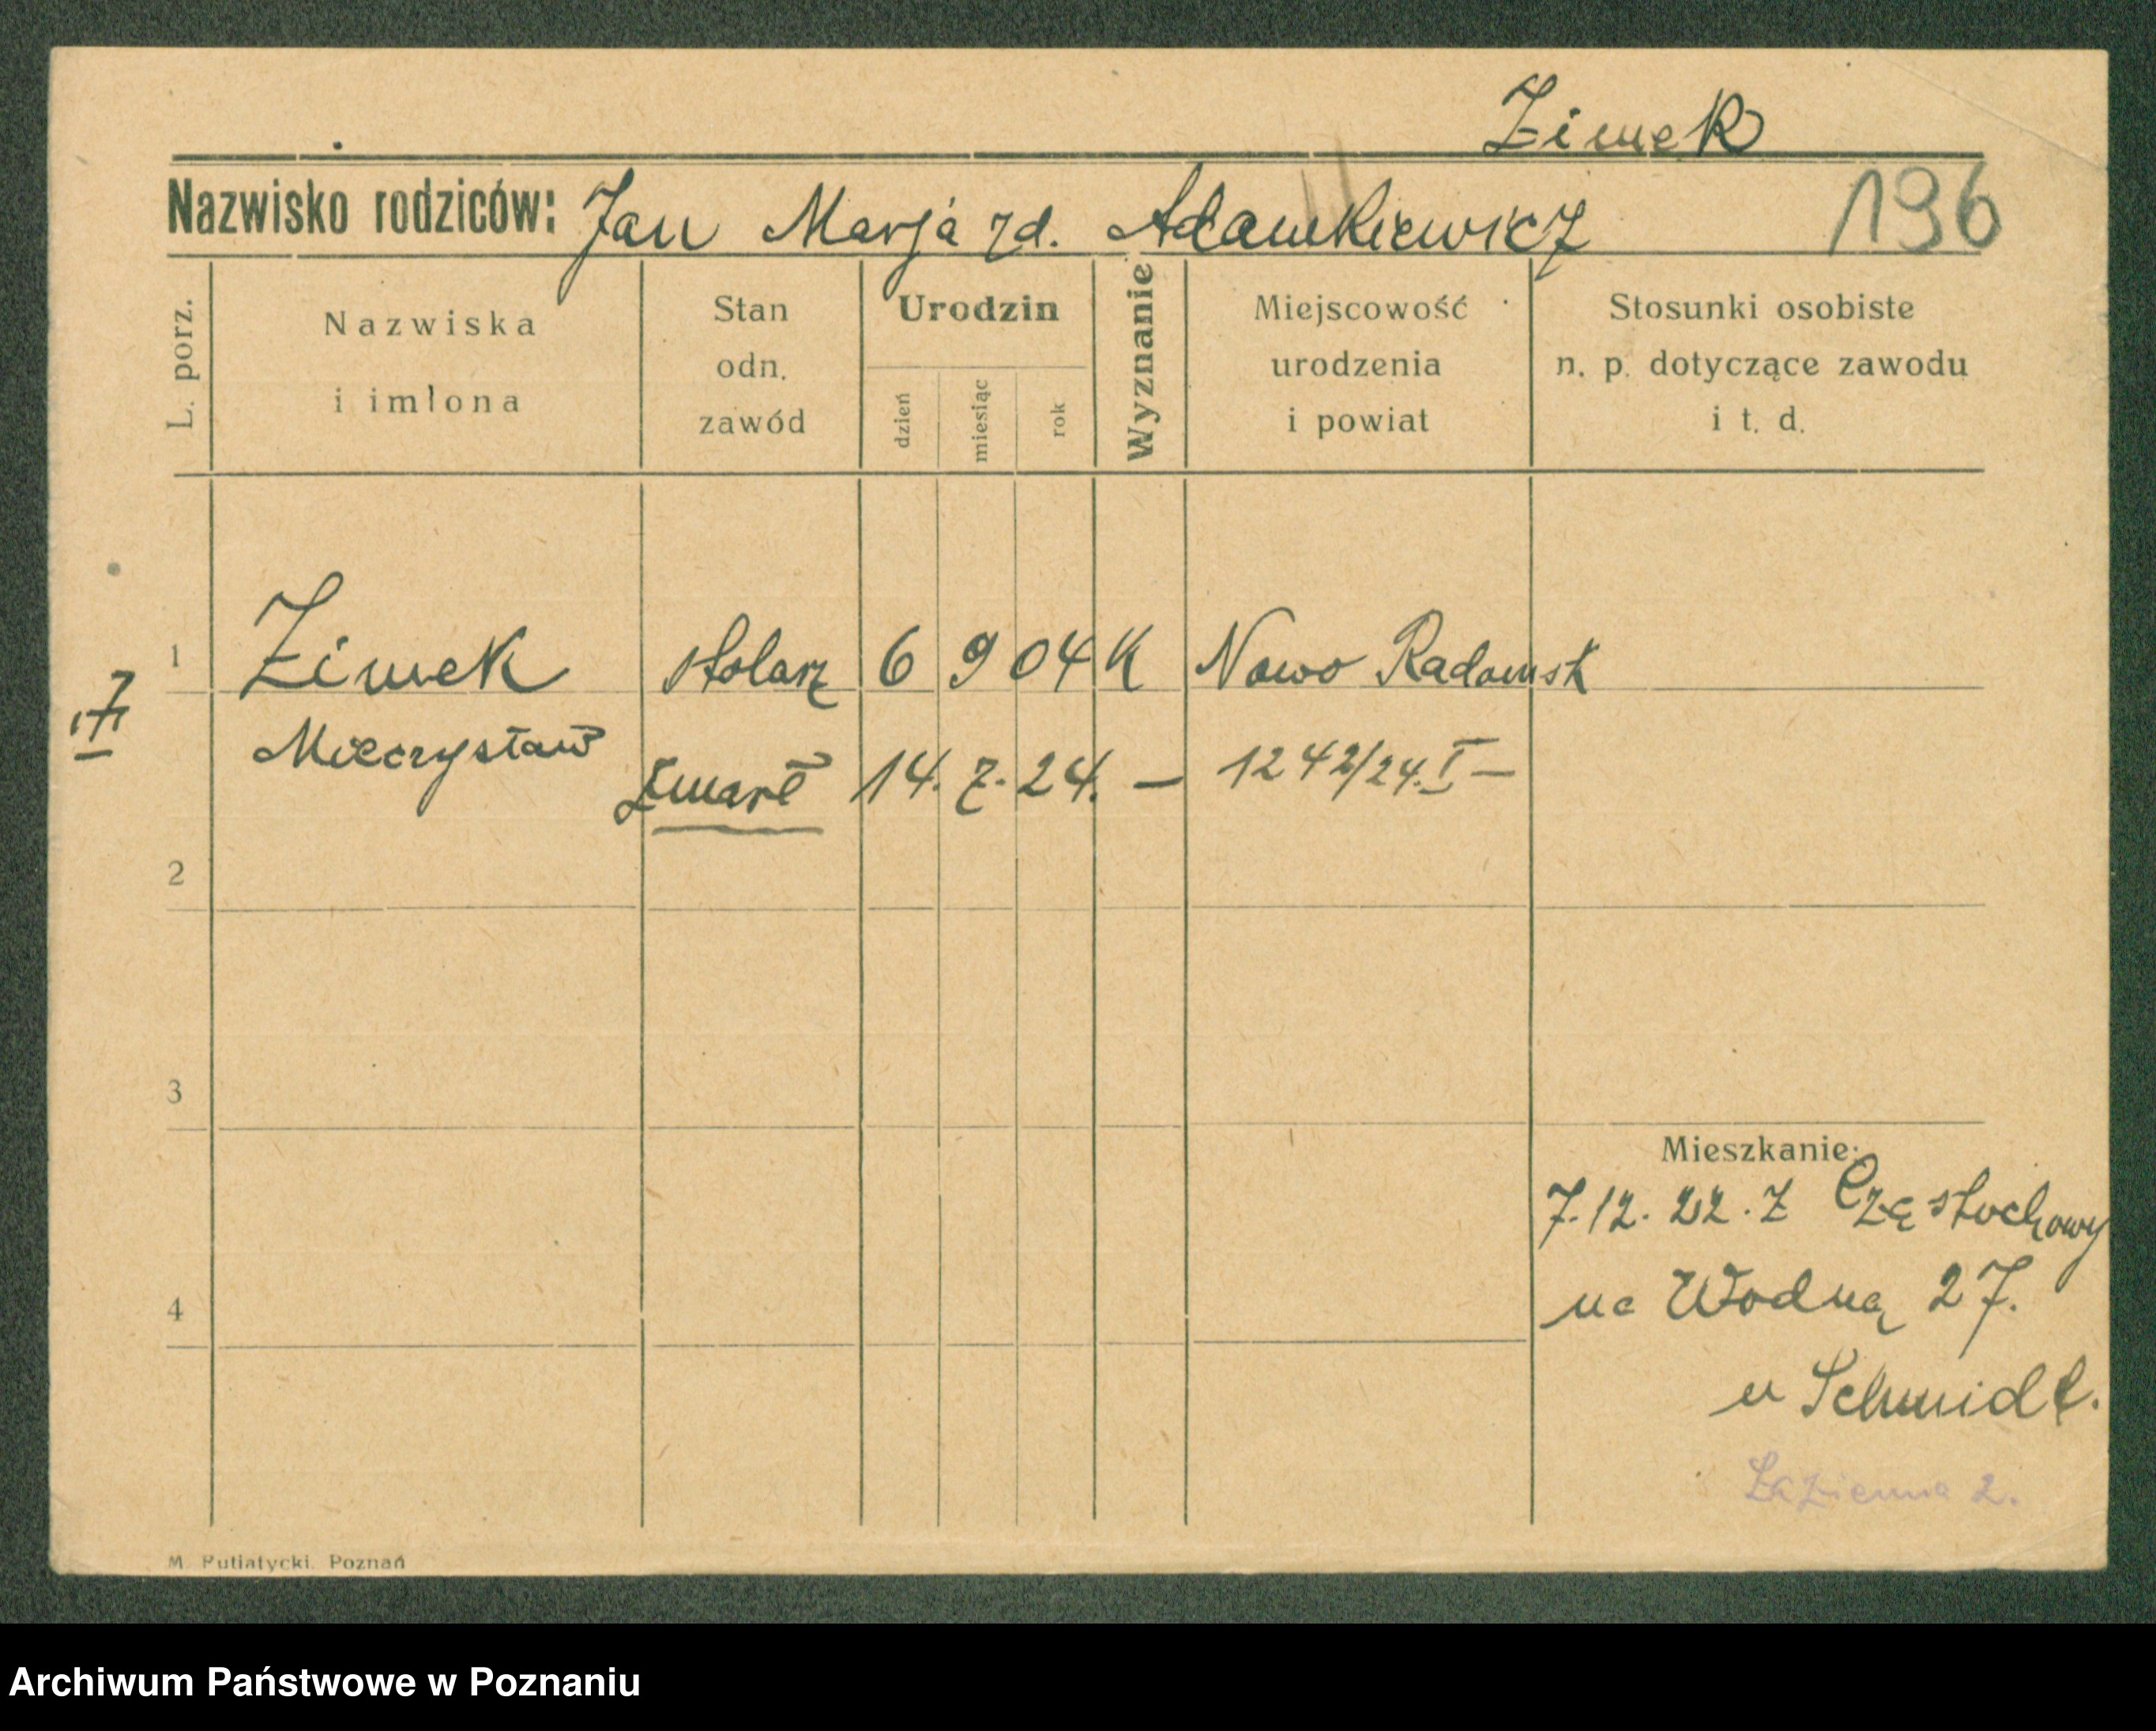 Zimek
Nazwisko rodziców: Jan Marja zd. Adamkiewicz 196
L. porz.
Nazwiska i imiona
Stan odn. zawód
Urodzin
dzień miesiąc rok
Wyznanie
Miejscowość urodzenia i powiat
Stosunki osobiste n. p. dotyczące zawodu i t. d.
1 Zimek stolarz 6 9 04 K Nowo Radomsk
Mieczysław
Zmarł 14. 7. 24. — 1242/24. I —
2
3
Mieszkanie:
7. 12. 22. z Częstochowy
4 na Wodną 27.
u Schmidt.
Łazienna 2.
M. Putiatycki. Poznań
Archiwum Państwowe w Poznaniu